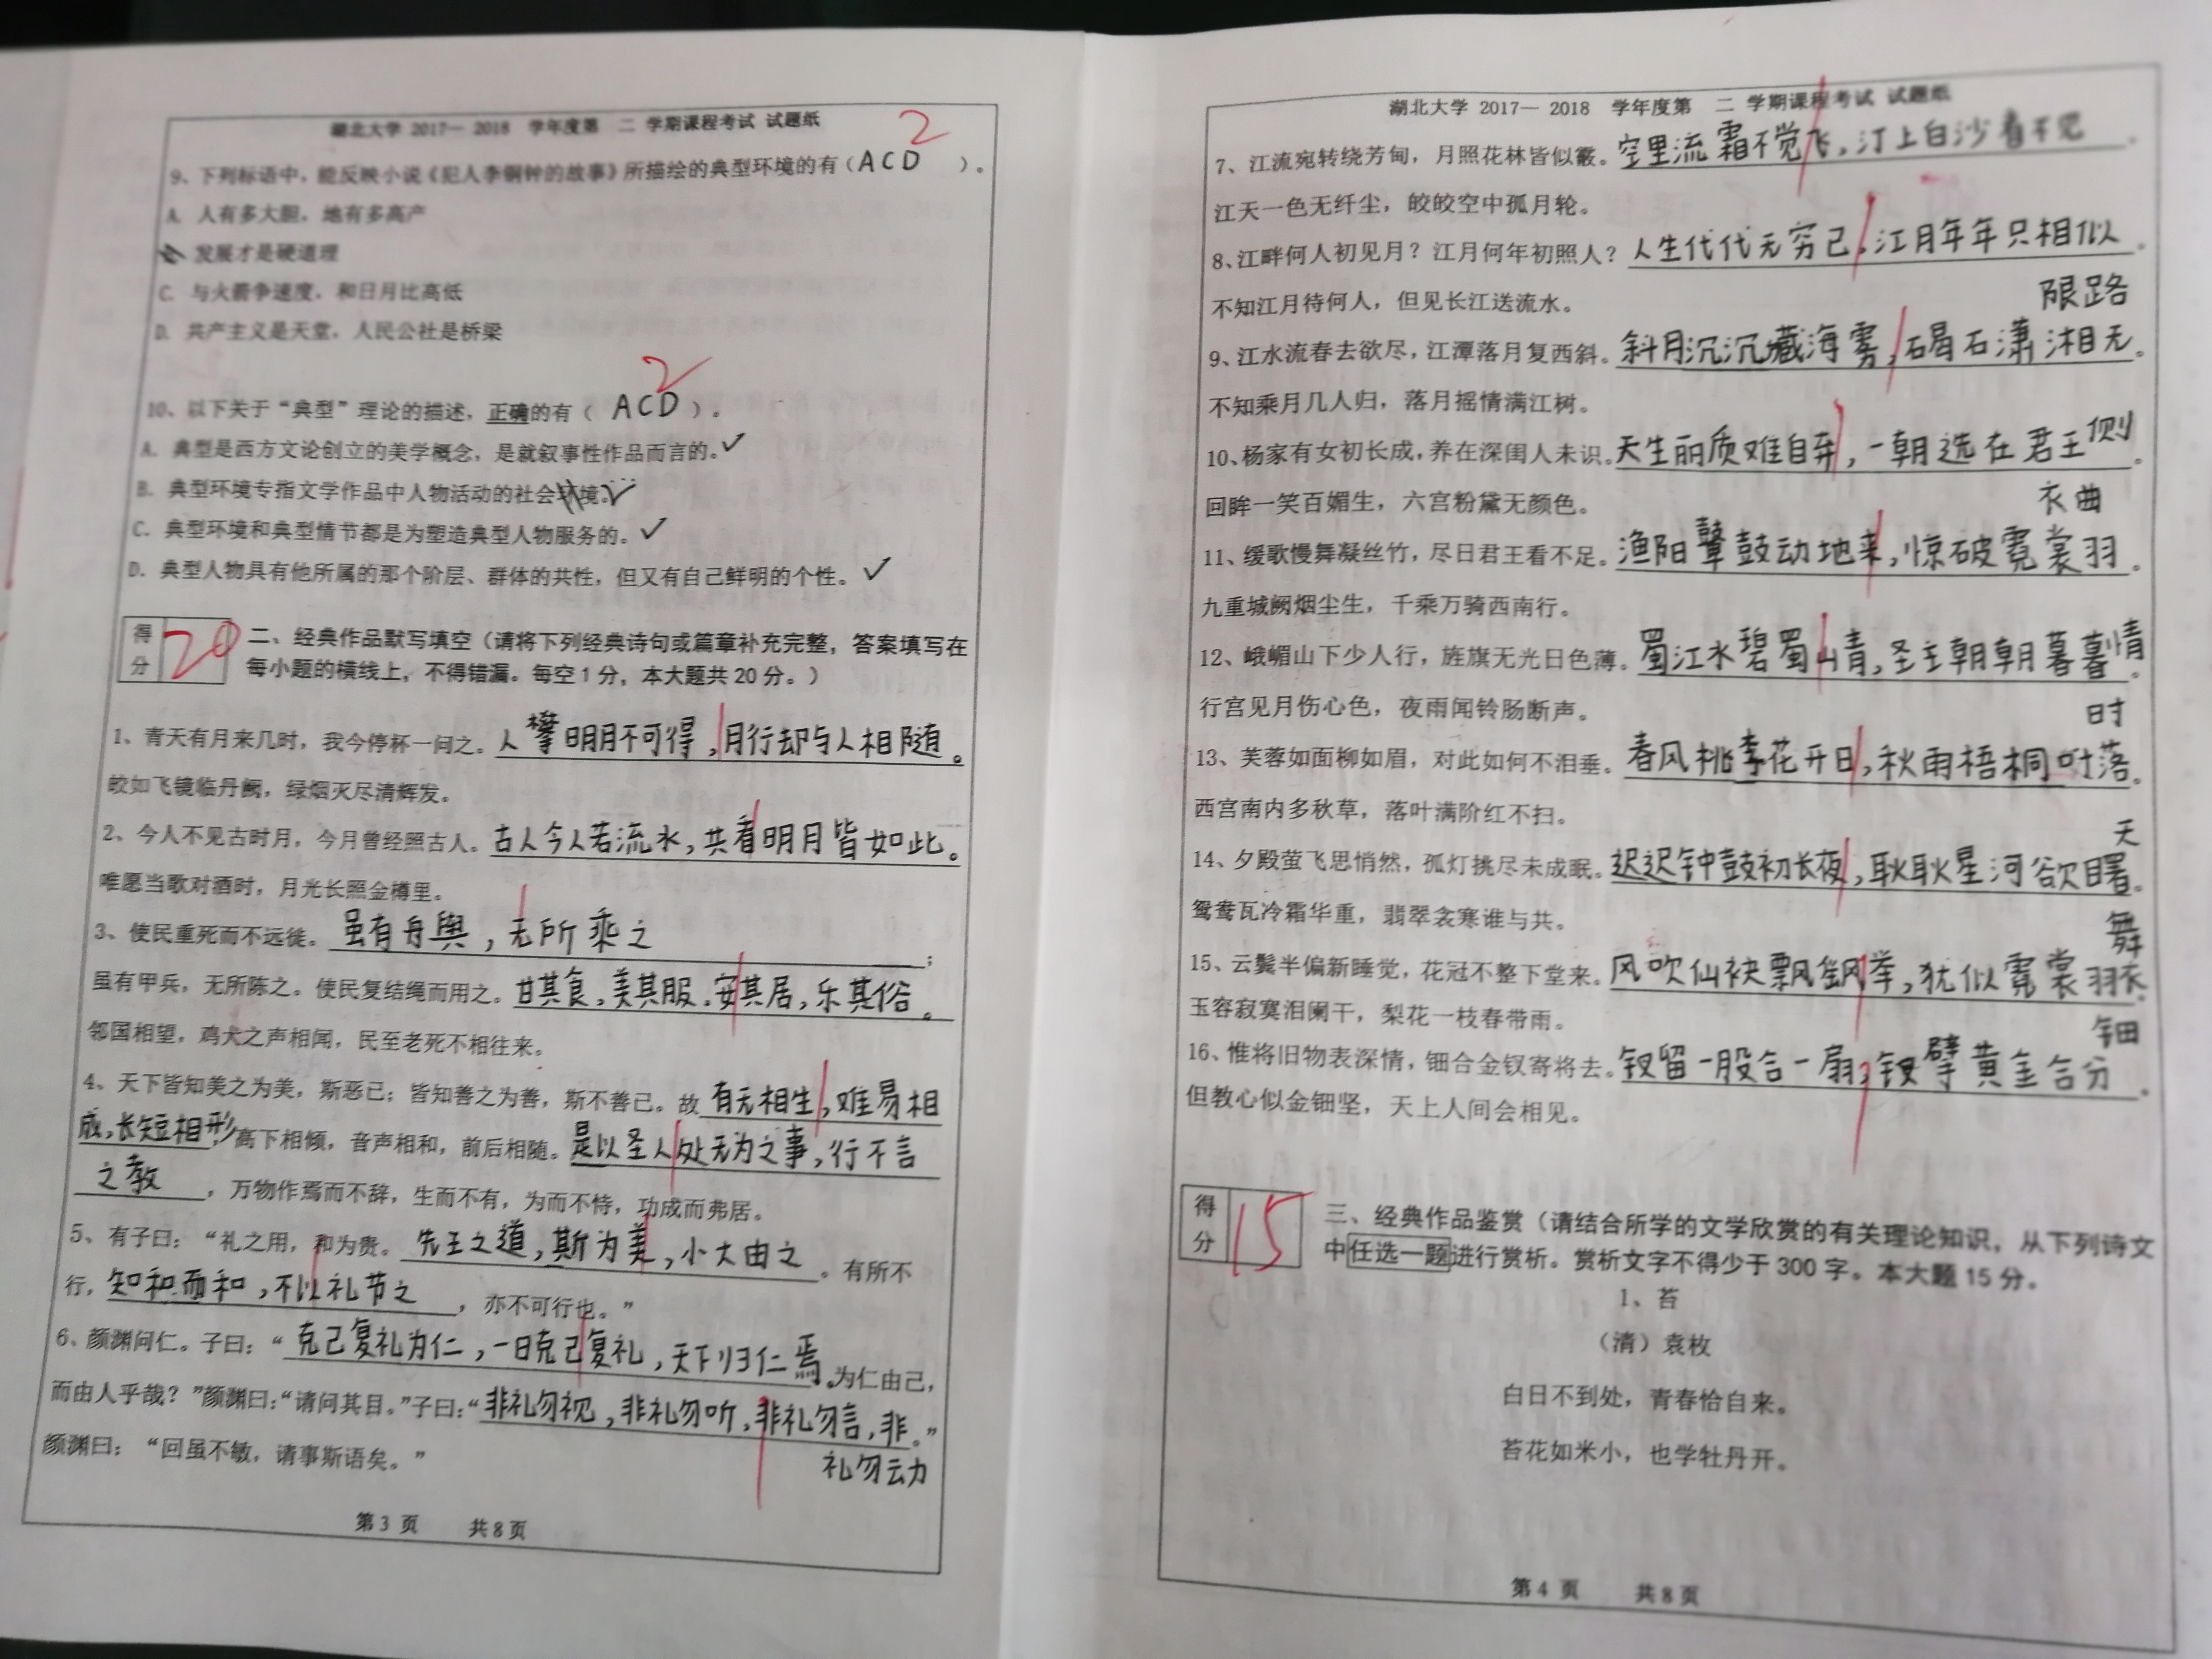 湖北大学 2017— 2018 学年度第 二 学期课程考试 试题纸
2
9、下列标语中，能反映小说《犯人李铜钟的故事》所描绘的典型环境的有（ACD）。
A. 人有多大胆，地有多高产
发展才是硬道理
C. 与火箭争速度，和日月比高低
D. 共产主义是天堂，人民公社是桥梁
2
10、以下关于“典型”理论的描述，正确的有（ ACD ）。
A. 典型是西方文论创立的美学概念，是就叙事性作品而言的。✓
B. 典型环境专指文学作品中人物活动的社会环境。✓
C. 典型环境和典型情节都是为塑造典型人物服务的。✓
D. 典型人物具有他所属的那个阶层、群体的共性，但又有自己鲜明的个性。✓
得分 20 二、经典作品默写填空（请将下列经典诗句或篇章补充完整，答案填写在
每小题的横线上，不得错漏。每空1分，本大题共20分。）
1、青天有月来几时，我今停杯一问之。人攀明月不可得，月行却与人相随。
皎如飞镜临丹阙，绿烟灭尽清辉发。
2、今人不见古时月，今月曾经照古人。古人今人若流水，共看明月皆如此。
唯愿当歌对酒时，月光长照金樽里。
3、使民重死而不远徙。虽有舟舆，无所乘之；
虽有甲兵，无所陈之。使民复结绳而用之。甘其食，美其服，安其居，乐其俗。
邻国相望，鸡犬之声相闻，民至老死不相往来。
4、天下皆知美之为美，斯恶已；皆知善之为善，斯不善已。故有无相生，难易相
成，长短相形，高下相倾，音声相和，前后相随。是以圣人处无为之事，行不言
之教，万物作焉而不辞，生而不有，为而不恃，功成而弗居。
5、有子曰：“礼之用，和为贵。先王之道，斯为美，小大由之。有所不
行，知和而和，不以礼节之，亦不可行也。”
6、颜渊问仁。子曰：“克己复礼为仁，一日克己复礼，天下归仁焉。为仁由己，
而由人乎哉？”颜渊曰：“请问其目。”子曰：“非礼勿视，非礼勿听，非礼勿言，非。”
礼勿动
颜渊曰：“回虽不敏，请事斯语矣。”
第3 页 共8页
湖北大学 2017— 2018 学年度第 二 学期课程考试 试题纸
7、江流宛转绕芳甸，月照花林皆似霰。空里流霜不觉飞，汀上白沙看不见。
江天一色无纤尘，皎皎空中孤月轮。
8、江畔何人初见月？江月何年初照人？人生代代无穷己，江月年年只相似。
不知江月待何人，但见长江送流水。
限路
9、江水流春去欲尽，江潭落月复西斜。斜月沉沉藏海雾，碣石潇湘无。
不知乘月几人归，落月摇情满江树。
10、杨家有女初长成，养在深闺人未识。天生丽质难自弃，一朝选在君王侧。
回眸一笑百媚生，六宫粉黛无颜色。
衣曲
11、缓歌慢舞凝丝竹，尽日君王看不足。渔阳鼙鼓动地来，惊破霓裳羽。
九重城阙烟尘生，千乘万骑西南行。
12、峨嵋山下少人行，旌旗无光日色薄。蜀江水碧蜀山青，圣主朝朝暮暮情。
行宫见月伤心色，夜雨闻铃肠断声。
时
13、芙蓉如面柳如眉，对此如何不泪垂。春风桃李花开日，秋雨梧桐叶落。
西宫南内多秋草，落叶满阶红不扫。
天
14、夕殿萤飞思悄然，孤灯挑尽未成眠。迟迟钟鼓初长夜，耿耿星河欲曙。
鸳鸯瓦冷霜华重，翡翠衾寒谁与共。
舞
15、云鬓半偏新睡觉，花冠不整下堂来。风吹仙袂飘飖举，犹似霓裳羽衣。
玉容寂寞泪阑干，梨花一枝春带雨。
钿
16、惟将旧物表深情，钿合金钗寄将去。钗留一股合一扇，钗擘黄金合分。
但教心似金钿坚，天上人间会相见。
得分 15 三、经典作品鉴赏（请结合所学的文学欣赏的有关理论知识，从下列诗文
中任选一题进行赏析。赏析文字不得少于300字。本大题15分。
1、苔
（清）袁枚
白日不到处，青春恰自来。
苔花如米小，也学牡丹开。
第4 页 共8页